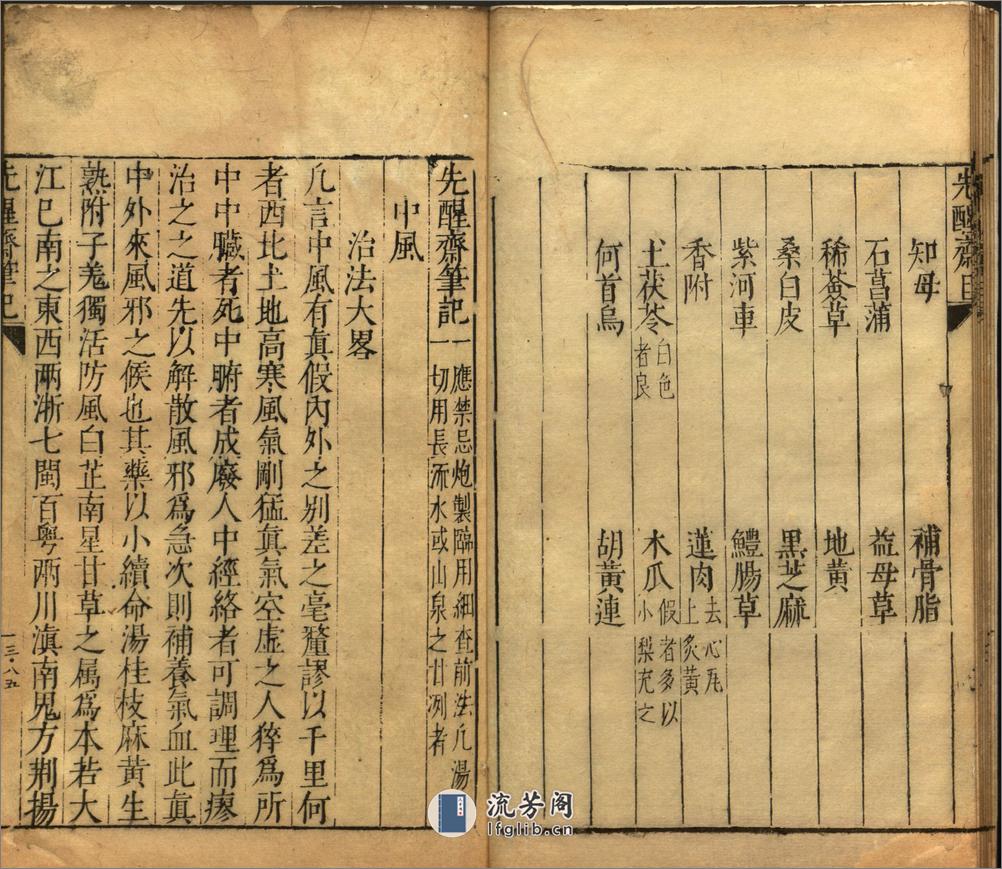 先醒齋目
知母 補骨脂
石菖蒲 益母草
稀薟草 地黃
桑白皮 黑芝麻
紫河車 鱧腸草
香附 蓮肉 去心瓦上炙黃
土茯苓 白色者良 木瓜 假者多以小梨充之
何首烏 胡黃連
先醒齋筆記 一應禁忌炮製臨用細查前法凡湯
一切用長流水或山泉之甘冽者
中風
治法大畧
凡言中風有眞假內外之别差之毫釐謬以千里何
者西北土地高寒風氣剛猛眞氣空虛之人猝爲所
中中臟者死中腑者成廢人中經絡者可調理而瘳
治之之道先以解散風邪爲急次則補養氣血此眞
中外來風邪之候也其藥以小續命湯桂枝麻黃生
熟附子羗獨活防風白芷南星甘草之属爲本若大
江已南之東西兩浙七閩百粤兩川滇南鬼方荆揚
先醒齋筆記
一
三·八五
流芳阁
lfglib.cn